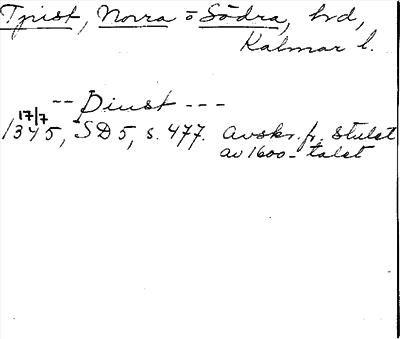 Tjust, Norra o Södra, hrd,
Kalmar l.
-- Diust ---
17/7
1345, SD 5, s. 477. Avskr. fr. slutet
av 1600-talet